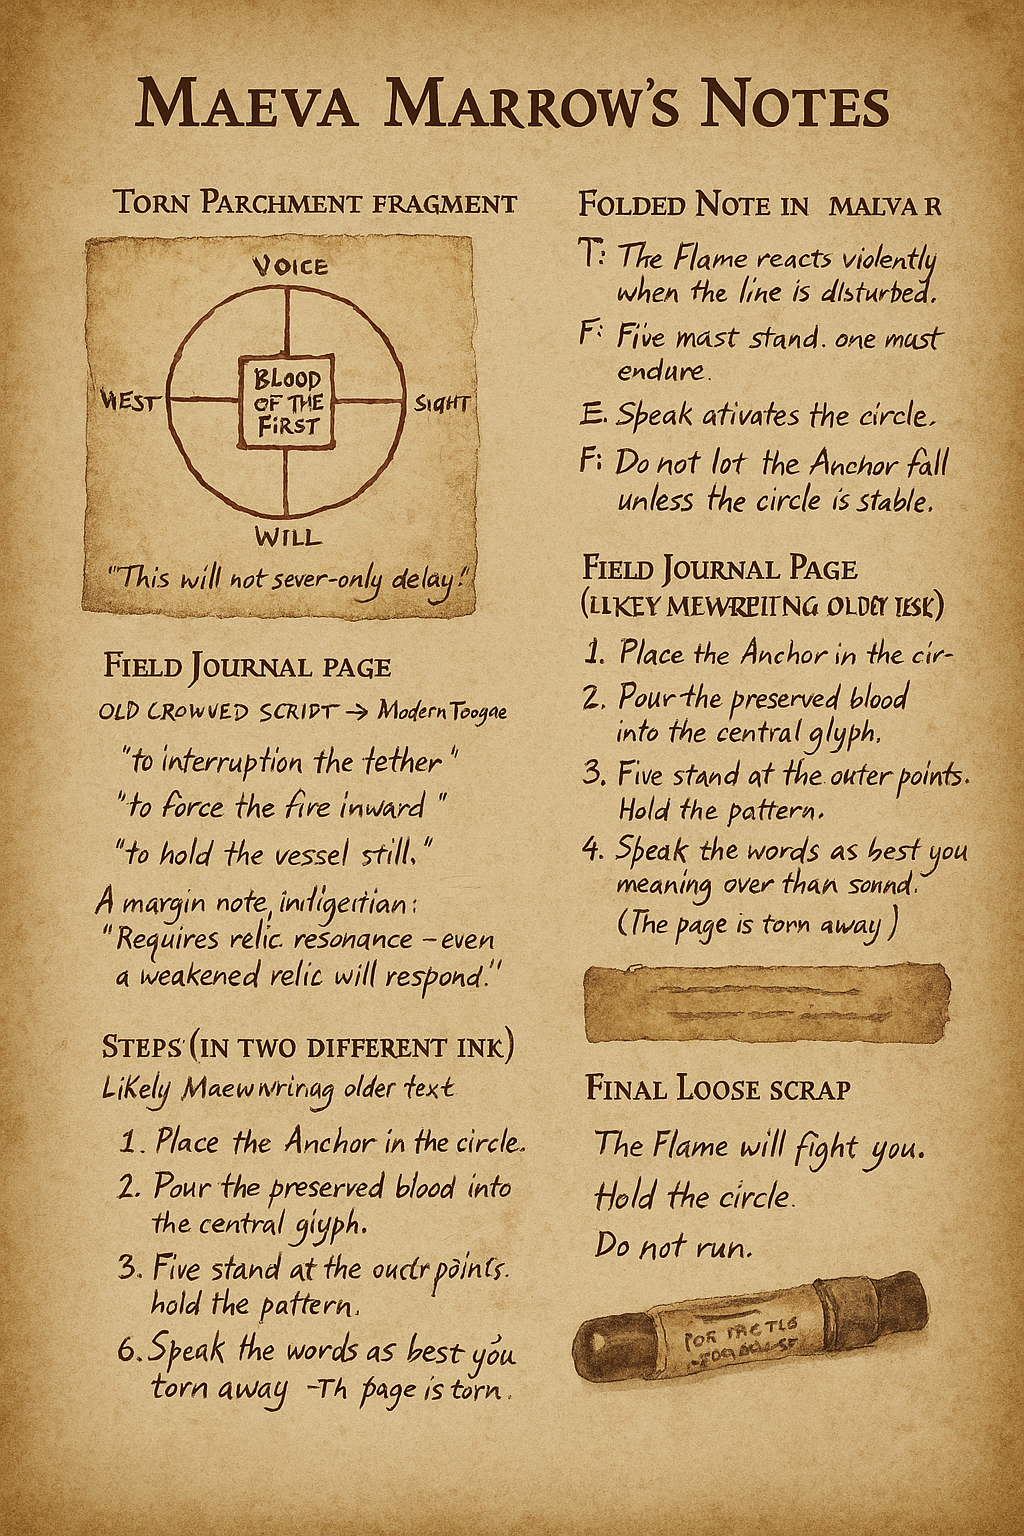 MAEVA MARROW'S NOTES
TORN PARCHMENT FRAGMENT
VOICE
WEST
BLOOD
OF THE
FIRST
SIGHT
WILL
"This will not sever-only delay!"
FIELD JOURNAL PAGE
OLD CROWVED SCRIPT → Modern Toogae
"to interruption the tether"
"to force the fire inward"
"to hold the vessel still."
A margin note,
"Requires relic resonance – even
a weakened relic will respond."
STEPS (IN TWO DIFFERENT INK)
Likely older text
1. Place the Anchor in the circle.
2. Pour the preserved blood into
the central giyph.
3. Five stand at the points.
hold the pattern.
6. Speak the words as best you
torn away -Th page is torn.
FOLDED NOTE IN MALVA R
T: The Flame reacts violently
when the line is dlsturbed.
F: Five mast stand. one must
endure.
E. Speak ativates the circle.
F: Do not lot the Anchor fall
unless the circle is stable.
FIELD JOURNAL PAGE
1. Place the Anchor in the cir-
2. Pour the preserved blood
into the central glyph.
3. Five stand at the outer points.
Hold the pattern.
4. Speak the words as best you
meaning over than sound.
(The page is torn away)
FINAL LOOSE SCRAP
The Flame will fight you.
Hold the circle.
Do not run.